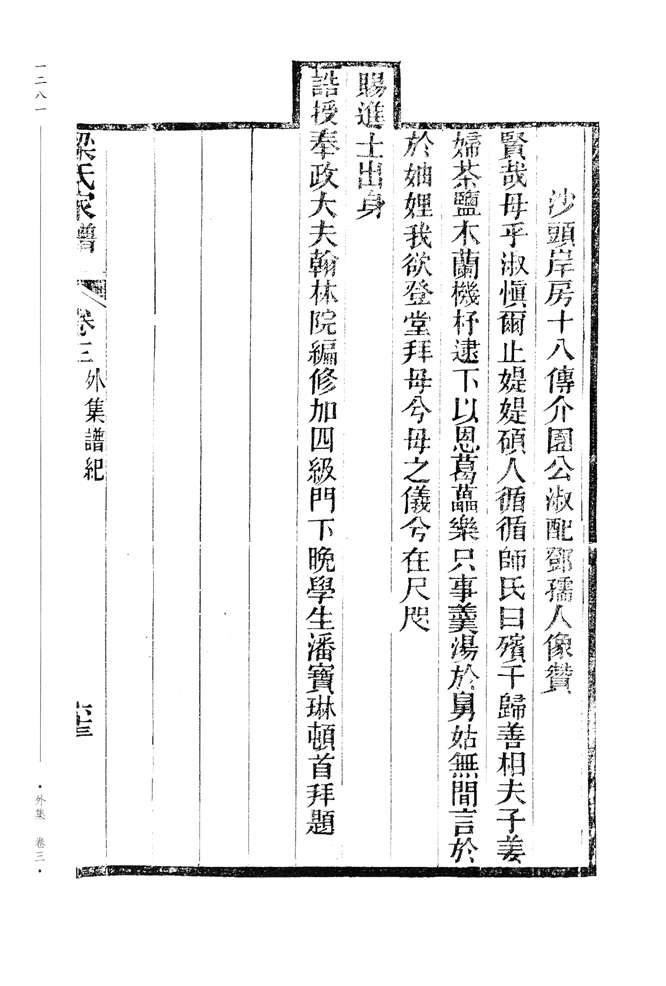 沙頭岸房十八傳介園公淑配鄧孺人像贊
賢哉母乎淑愼爾止媞媞碩人循循師氏曰殯于歸善相夫子姜
婦茶鹽木蘭機杼逮下以恩葛藟樂只事羹湯於舅姑無間言於
於妯娌我欲登堂拜母兮母之儀兮在尺咫
賜進士出身
誥授奉政大夫翰林院編修加四級門下晚學生潘寶琳頓首拜題
梁氏家譜
卷三 外集譜紀
一二八一
·外集 卷三·